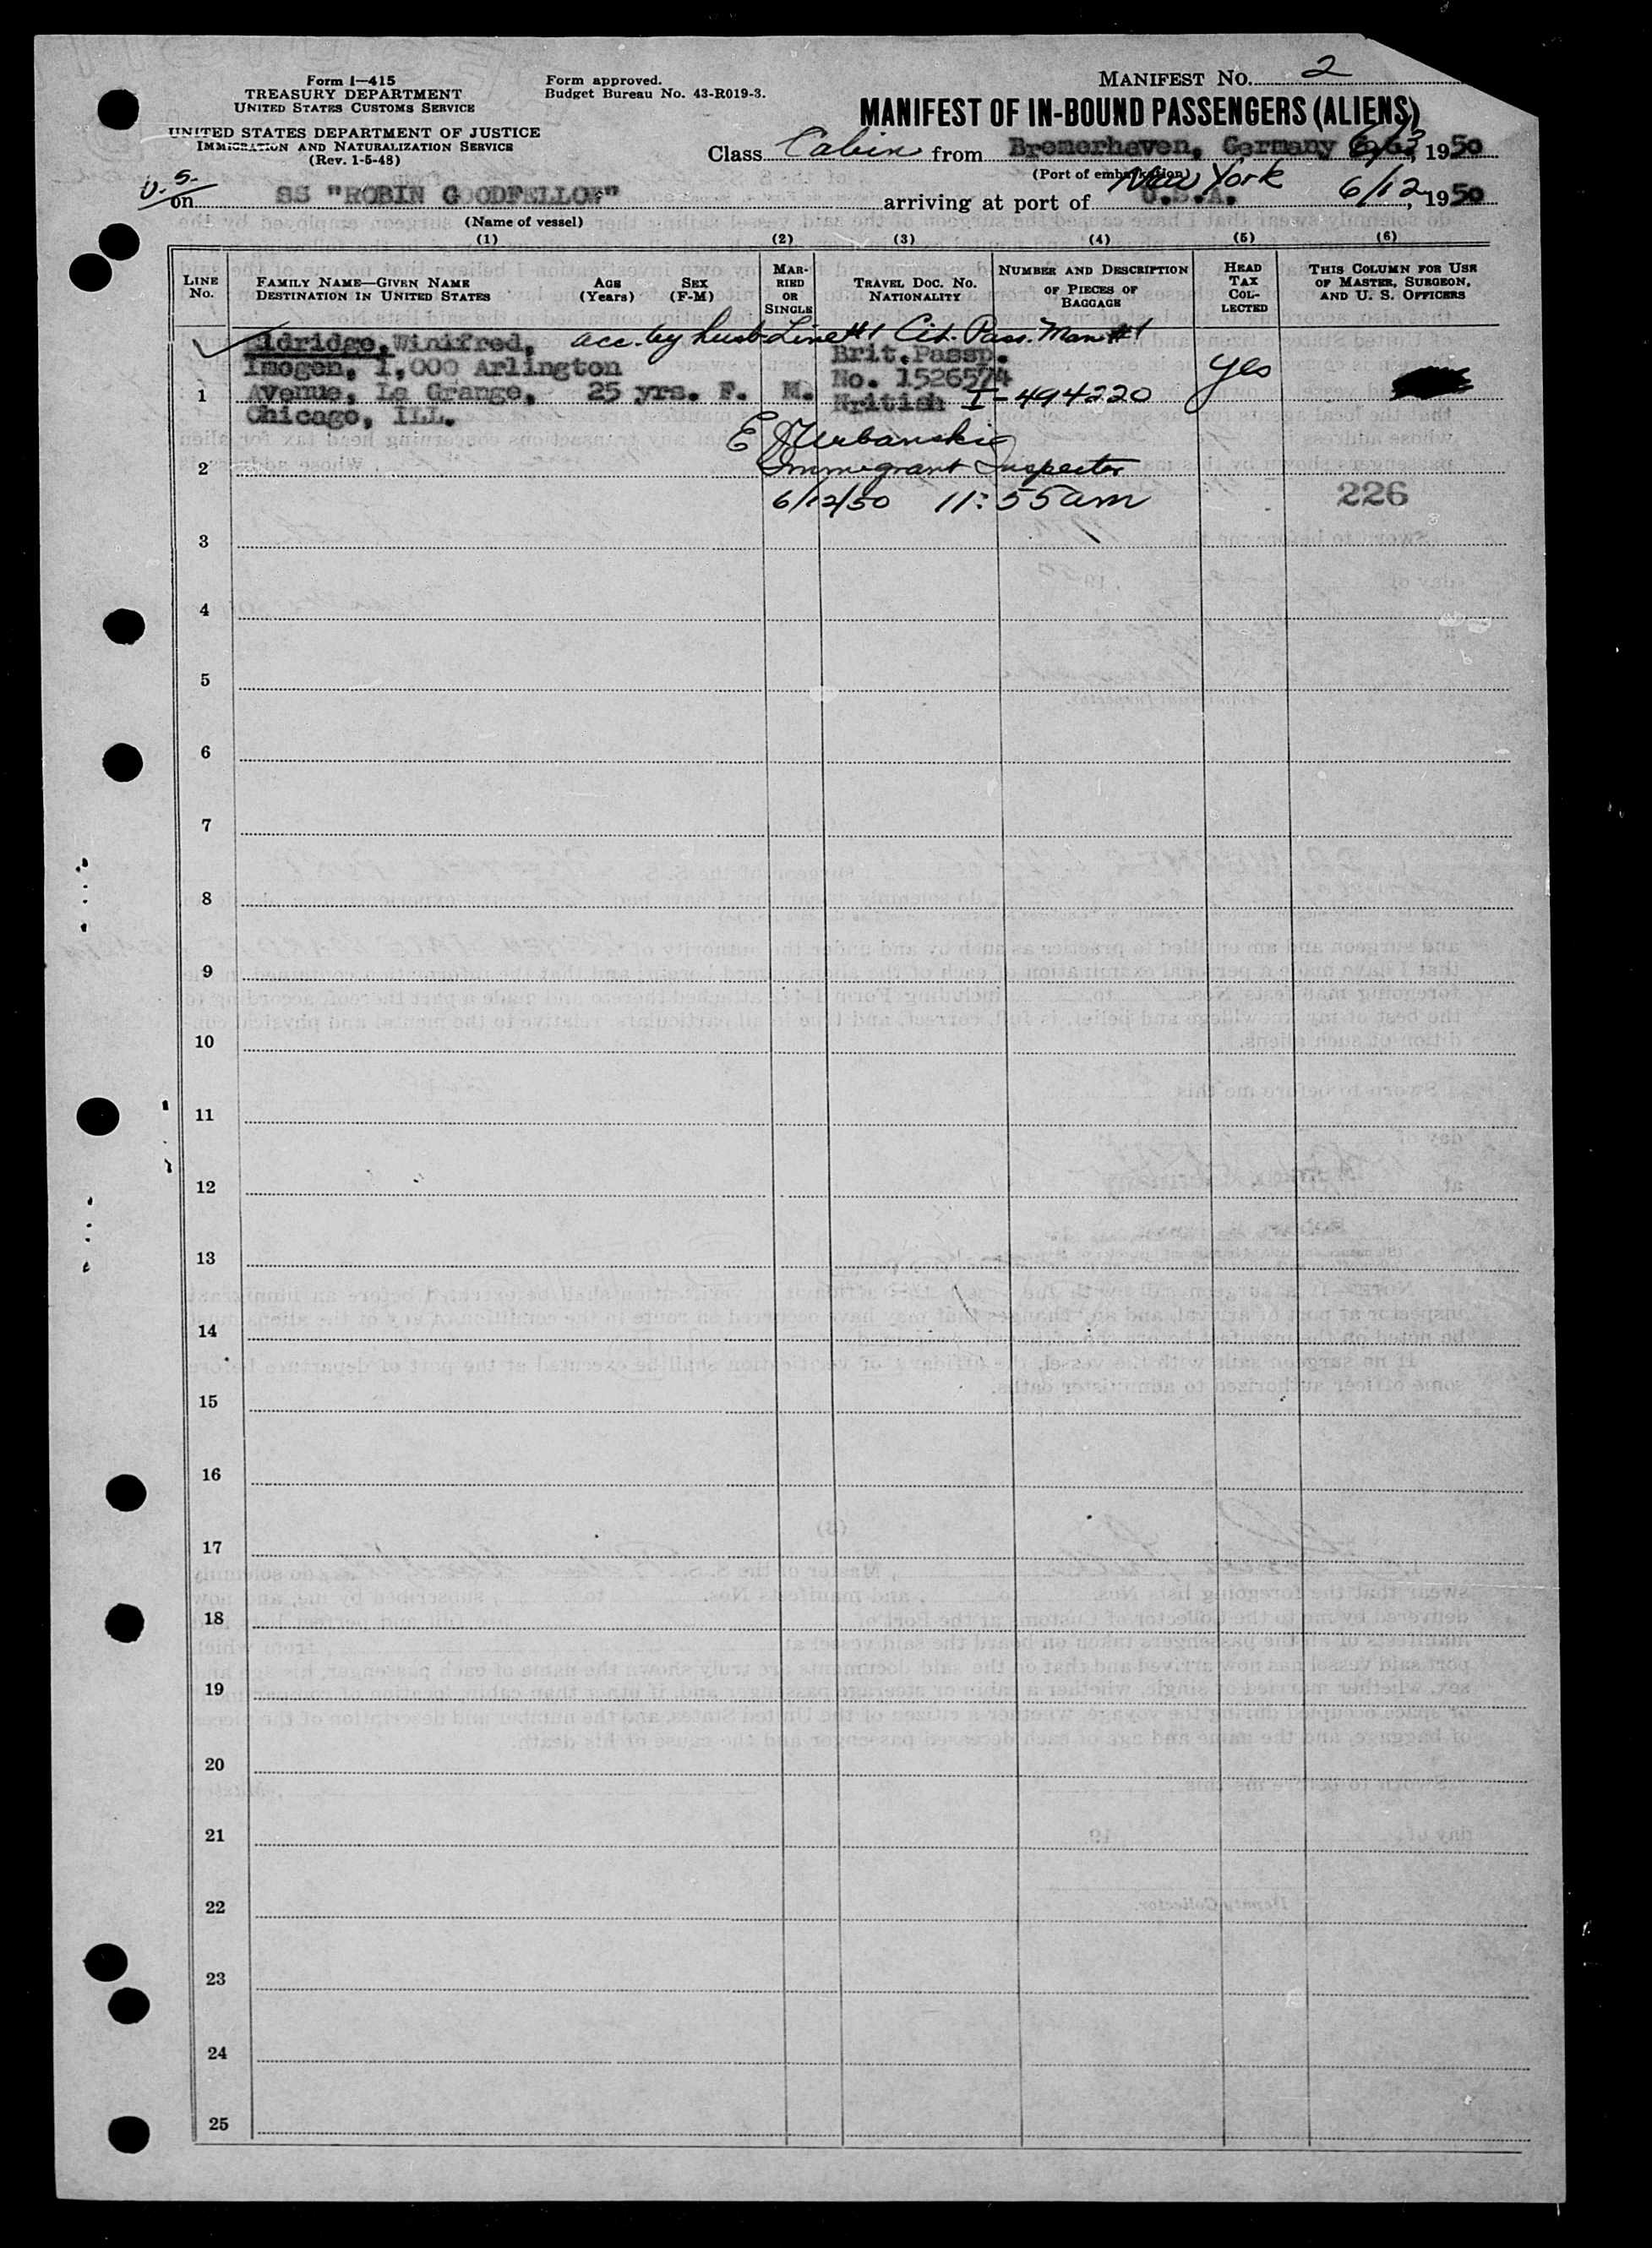 Form I—415
TREASURY DEPARTMENT
UNITED STATES CUSTOMS SERVICE
UNITED STATES DEPARTMENT OF JUSTICE
IMMIGRATION AND NATURALIZATION SERVICE
(Rev. 1-5-48)
Form approved.
Budget Bureau No. 43-R019-3.
MANIFEST NO. 2
MANIFEST OF IN-BOUND PASSENGERS (ALIENS)
Class Cabin from Bremerhaven, Germany 1950
(Port of embarkation)
U.S.
on SS "ROBIN GOODFELLOW"
(Name of vessel)
arriving at port of New York U.S.A. 6/12, 1950
(1) (2) (3) (4) (5) (6)
LINE No.
FAMILY NAME—GIVEN NAME
DESTINATION IN UNITED STATES
AGE (Years)
SEX (F-M)
MAR-
RIED
OR
SINGLE
TRAVEL DOC. NO.
NATIONALITY
NUMBER AND DESCRIPTION
OF PIECES OF
BAGGAGE
HEAD
TAX
COL-
LECTED
THIS COLUMN FOR USE
OF MASTER, SURGEON,
AND U. S. OFFICERS
acc. by husb Line #1 Cit. Pass. Man #1
Eldridge, Winifred, Brit. Passp.
Imogen, 1,000 Arlington No. 1526574 yes
1 Avenue, La Grange, 25 yrs. F. M. British I-494220
Chicago, ILL.
E Urbanski
2 Immigrant Inspector
6/12/50 11:55am 226
3
4
5
6
7
8
9
10
11
12
13
14
15
16
17
18
19
20
21
22
23
24
25